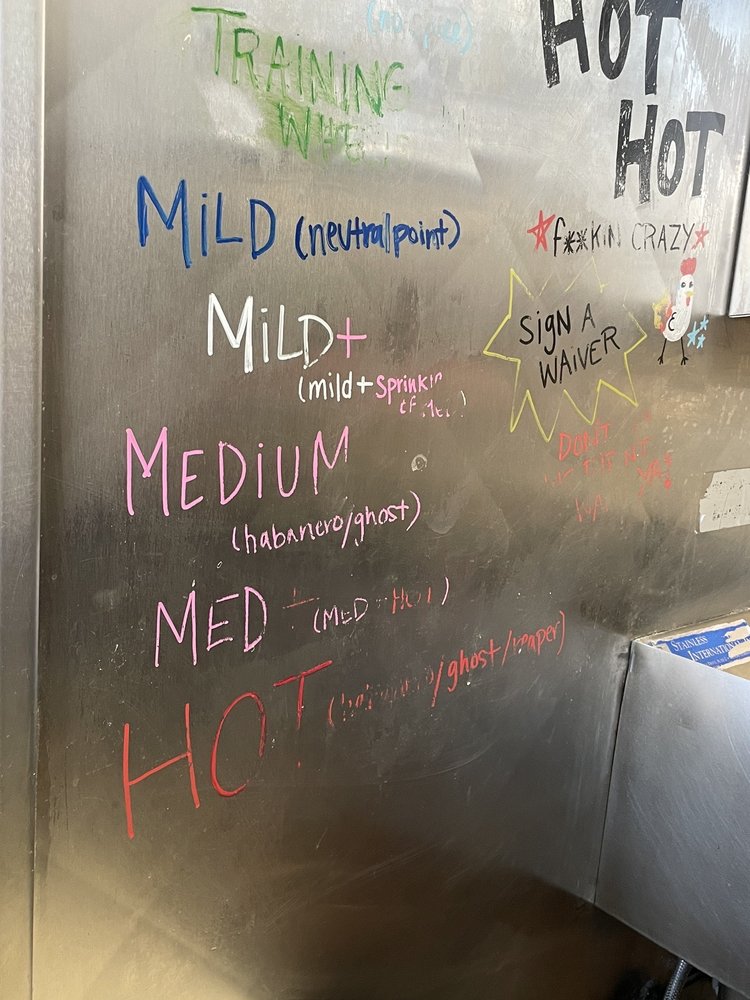 (no spice)
TRAINING
WHEELS
MiLD (neutral point)
MiLD+
(mild + Sprinkle
of Med)
MEDiUM
(habanero/ghost)
MED + (MED + HOT)
HOT (habanero/ghost/reaper)
HOT
HOT
f**KiN CRAZY
SigN A
WAiVER
DON'T
STAINLESS
INTERNATIONAL